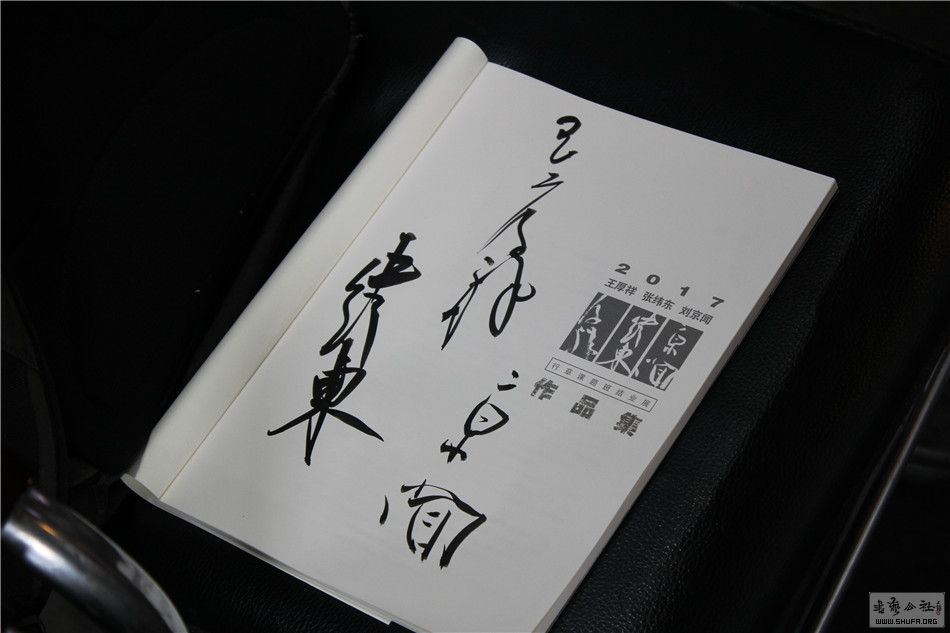 王厚祥
纬东
京闻
2017
王厚祥 张纬东 刘京闻
厚祥 纬东 京闻
行草课题班结业展
作品集
书艺公社
WWW.SHUFA.ORG